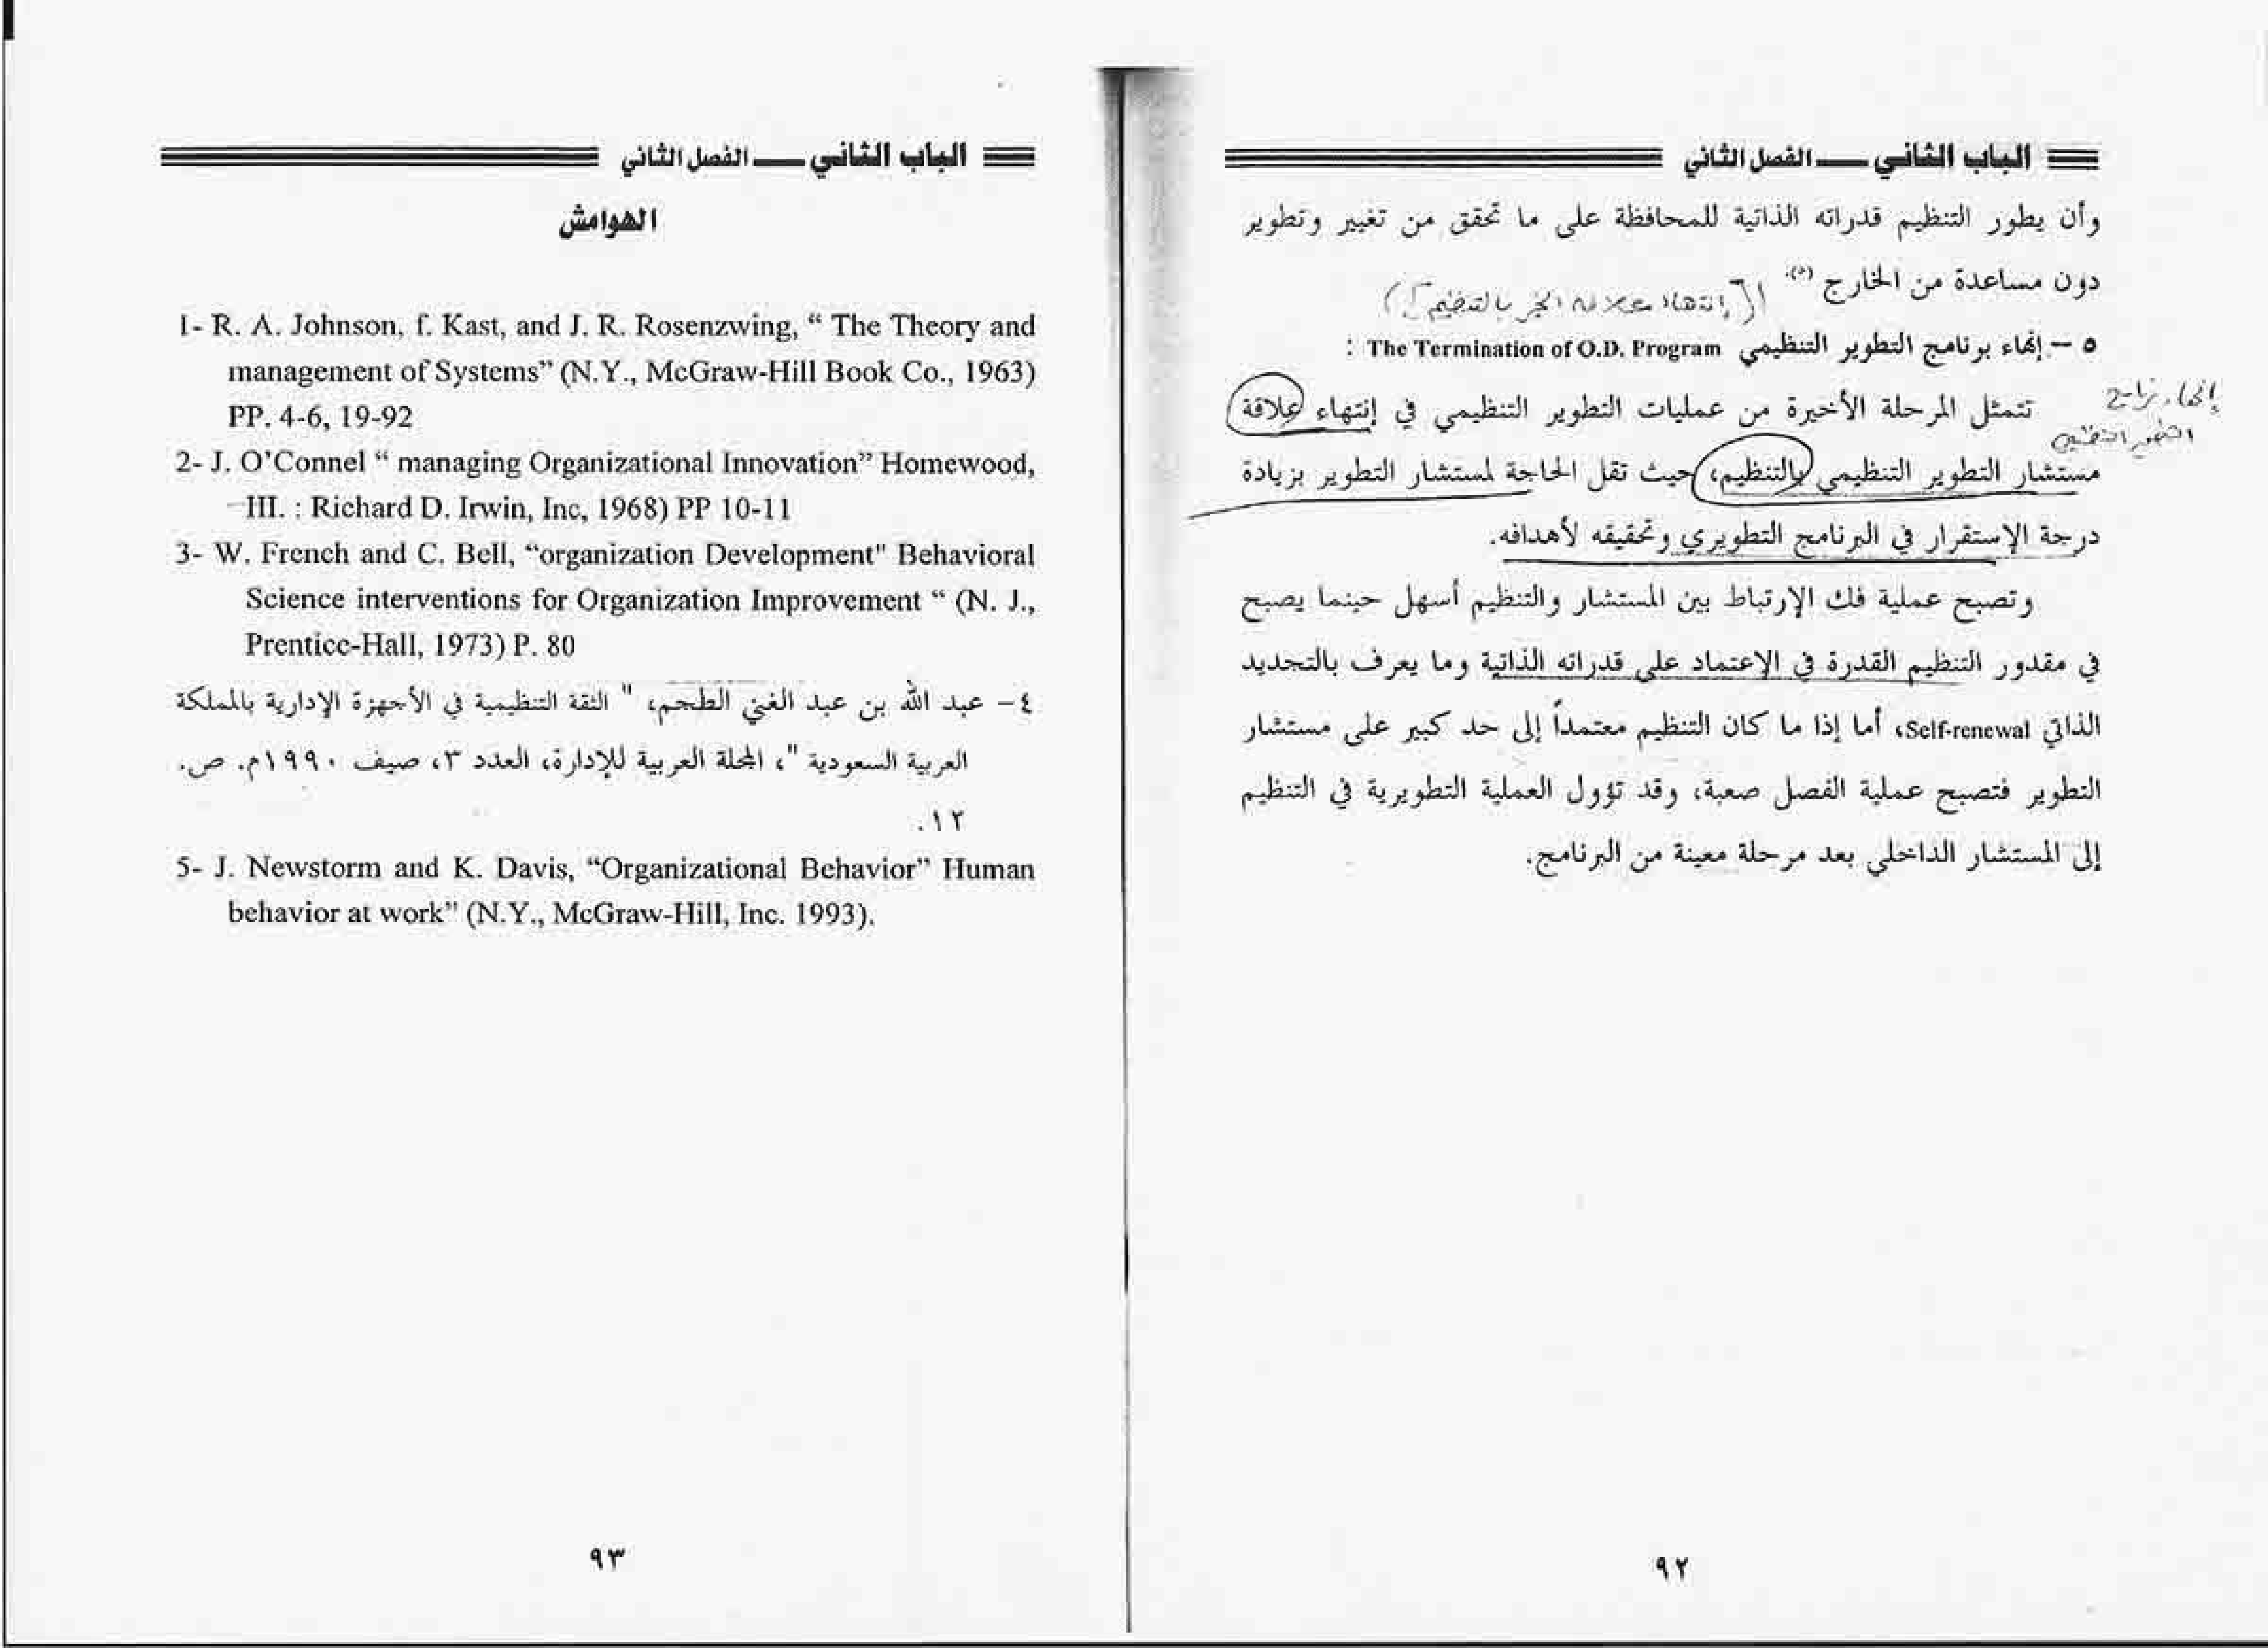 الباب الثاني ـــ الفصل الثاني
وأن يطور التنظيم قدراته الذاتية للمحافظة على ما تحقق من تغيير وتطوير
دون مساعدة من الخارج (٥).
([إنتهاء علاقة الخبير بالتنظيم])
٥ – إنهاء برنامج التطوير التنظيمي The Termination of O.D. Program :
إنهاء برنامج
التطوير التنظيمي
تتمثل المرحلة الأخيرة من عمليات التطوير التنظيمي في إنتهاء علاقة
مستشار التطوير التنظيمي بالتنظيم، حيث تقل الحاجة لمستشار التطوير بزيادة
درجة الإستقرار في البرنامج التطويري وتحقيقه لأهدافه.
وتصبح عملية فك الإرتباط بين المستشار والتنظيم أسهل حينما يصبح
في مقدور التنظيم القدرة في الإعتماد على قدراته الذاتية وما يعرف بالتجديد
الذاتي Self-renewal، أما إذا ما كان التنظيم معتمداً إلى حد كبير على مستشار
التطوير فتصبح عملية الفصل صعبة، وقد تؤول العملية التطويرية في التنظيم
إلى المستشار الداخلي بعد مرحلة معينة من البرنامج.
٩٢
الباب الثاني ـــ الفصل الثاني
الهوامش
1- R. A. Johnson, f. Kast, and J. R. Rosenzwing, “ The Theory and
management of Systems” (N.Y., McGraw-Hill Book Co., 1963)
PP. 4-6, 19-92
2- J. O’Connel “ managing Organizational Innovation” Homewood,
III. : Richard D. Irwin, Inc, 1968) PP 10-11
3- W. French and C. Bell, “organization Development" Behavioral
Science interventions for Organization Improvement “ (N. J.,
Prentice-Hall, 1973) P. 80
٤ – عبد الله بن عبد الغني الطجم، " الثقة التنظيمية في الأجهزة الإدارية بالمملكة
العربية السعودية "، المجلة العربية للإدارة، العدد ٣، صيف ١٩٩٠م. ص.
١٢.
5- J. Newstorm and K. Davis, “Organizational Behavior” Human
behavior at work” (N.Y., McGraw-Hill, Inc. 1993).
٩٣